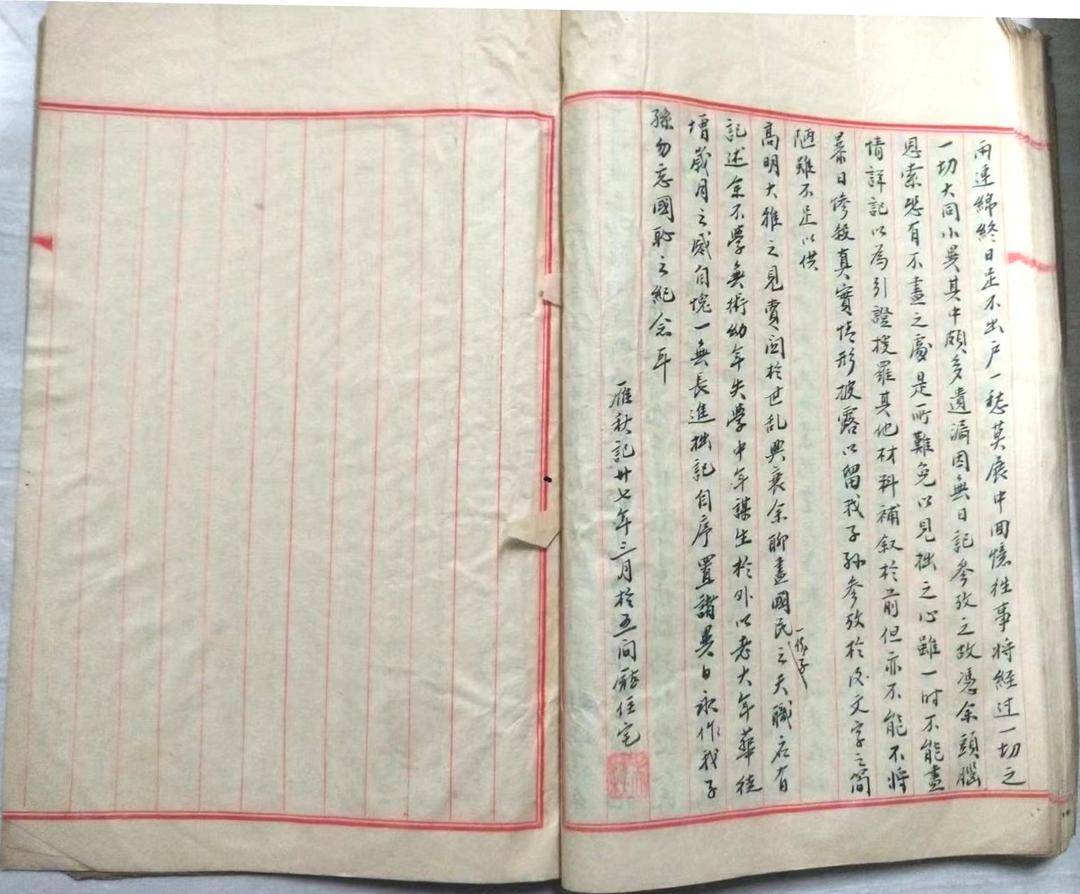 雨連綿終日足不出戶一愁莫展中回憶往事將經过一切之
一切大同小異其中頗多遺漏因無日記參攷之故憑余頭腦
思索恐有不盡之處是所難免以見拙之心雖一时不能盡
情詳記以為引證搜羅其他材料補叙於前但亦不能不將
暴日慘殺真實情形披露以留我子孙參攷於後文字之簡
陋雖不足以供
高明大雅之見賣因於世乱與衰余聊盡國民一份子之天職应有
記述余不學無術幼年失學中年謀生於外以老大年華徒
增歲月之感自愧一無長進拙記自序置諸異日永作我子
孫勿忘國恥之紀念耳
雁秋記廿七年三月於五间廳住宅